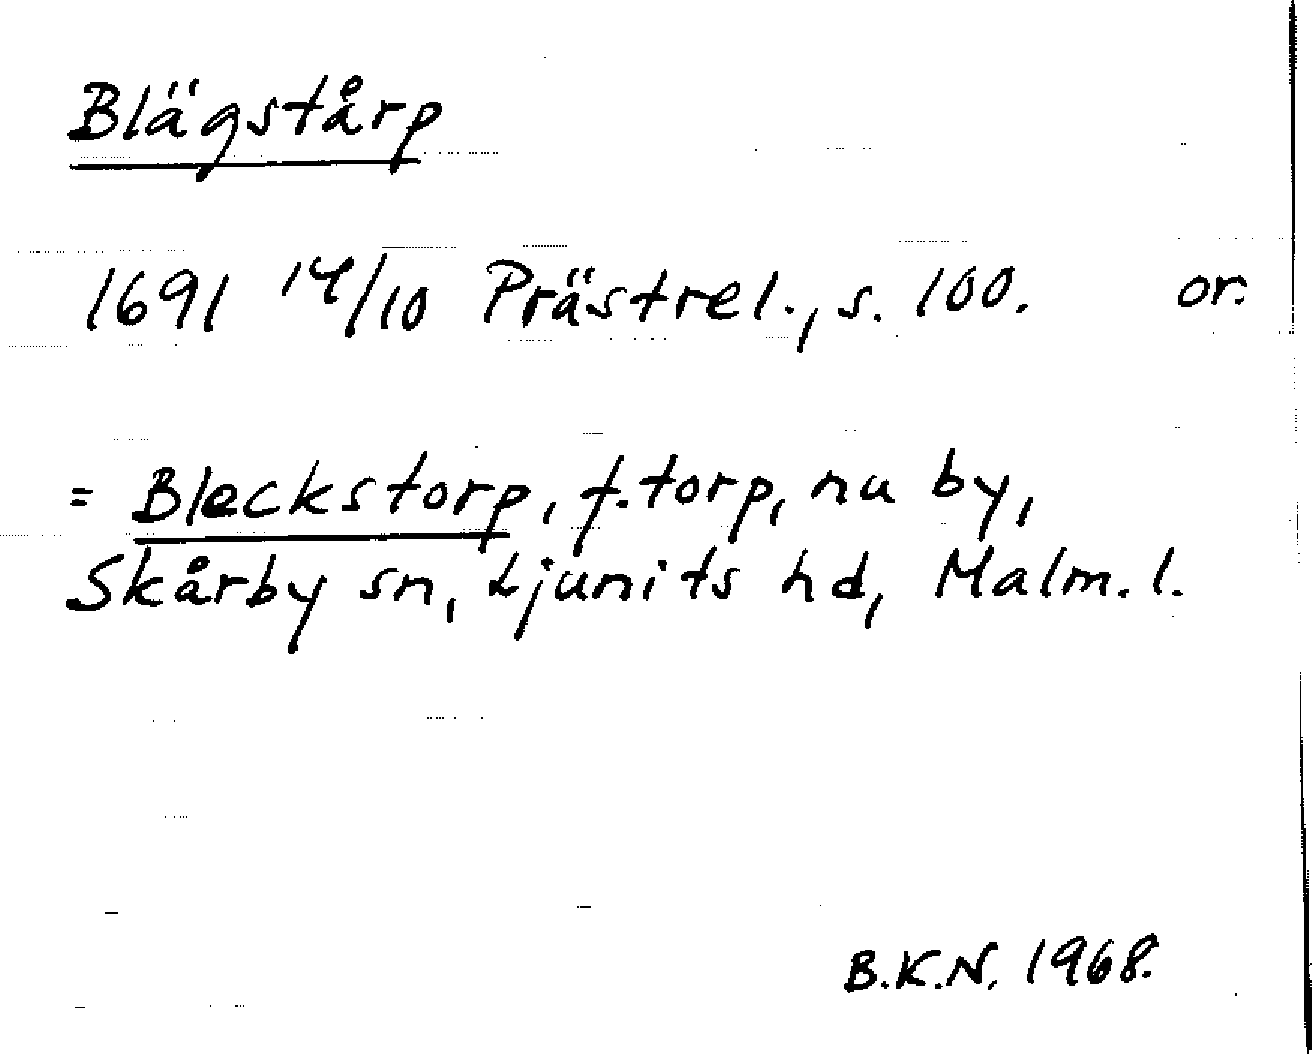 Blägstårp
1691 14/10 Prästrel., s. 100. or.
= Bleckstorp, f. torp, nu by,
Skårby sn, Ljunits hd, Malm. l.
B.K.N. 1968.